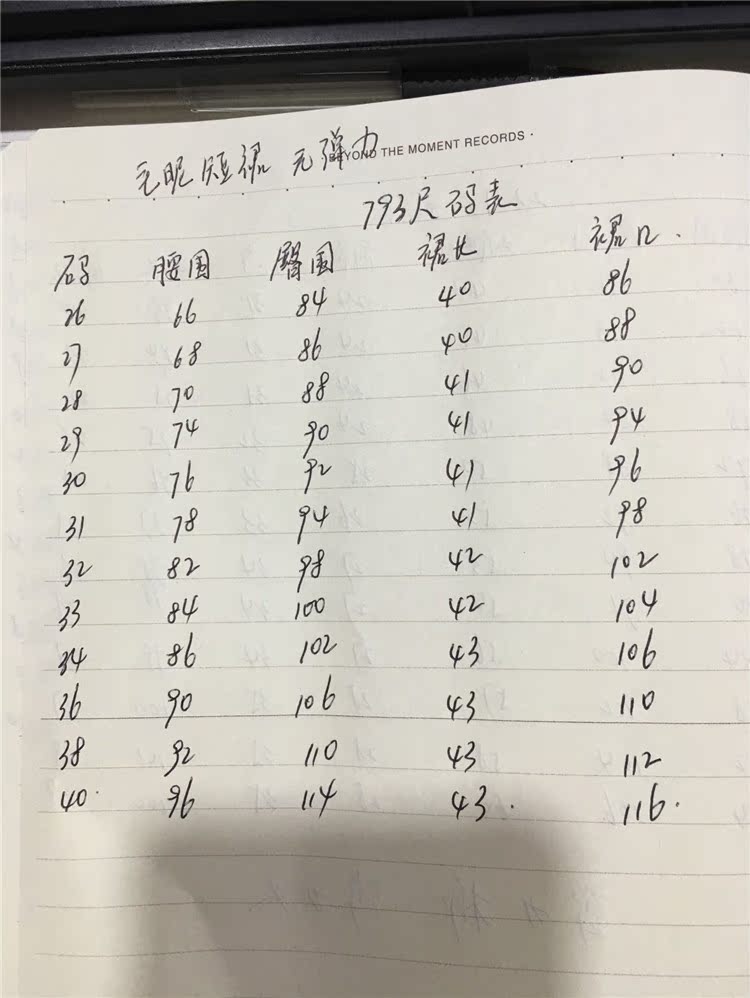 BEYOND THE MOMENT RECORDS
毛呢短裙 无弹力
793尺码表
码 腰围 臀围 裙长 裙口.
26 66 84 40 86
27 68 86 40 88
28 70 88 41 90
29 74 90 41 94
30 76 92 41 96
31 78 94 41 98
32 82 98 42 102
33 84 100 42 104
34 86 102 43 106
36 90 106 43 110
38 92 110 43 112
40. 96 114 43. 116.